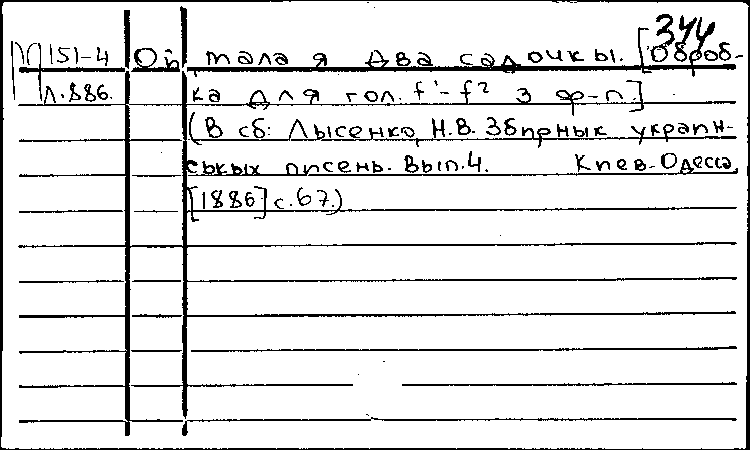 344
П151-4 Ой мала я два садочкы. [Оброб-
Л.886. ка для гол. f¹-f² з ф-п.]
(В сб: Лысенко, Н.В. Збирнык украин-
ськых писень. Вып.4. Киев-Одесса,
[1886] с.67.)